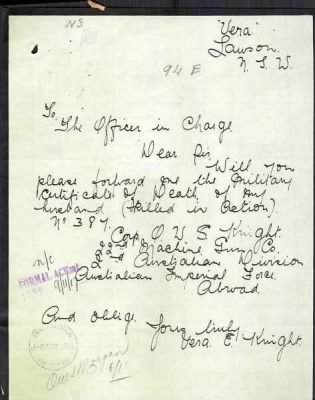 NS
"Vera"
Lawson.
N. S. W.
94 E
To
The Officer in Charge
Dear Sir
Will you
please forward me the Military
Certificate of Death of my
husband (Killed in Action).
No 387.
Corp. O. W. S. Knight.
Machine Gun Co.
2nd Australian Division
Australian Imperial Force.
Abroad
n/c
FORMAL ACK
9/11/17
And oblige.
Yours truly
Vera E. Knight.